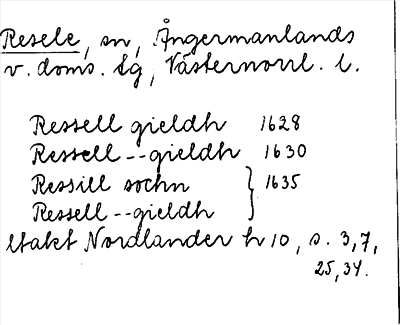 Resele, sn, Ångermanlands
v. doms. lg, Västernorrl. l.
Ressell gieldh 1628
Ressell--gieldh 1630
Ressill sochn } 1635
Ressell--gieldh
Utakt Nordlander h 10, s. 3, 7,
25, 34.